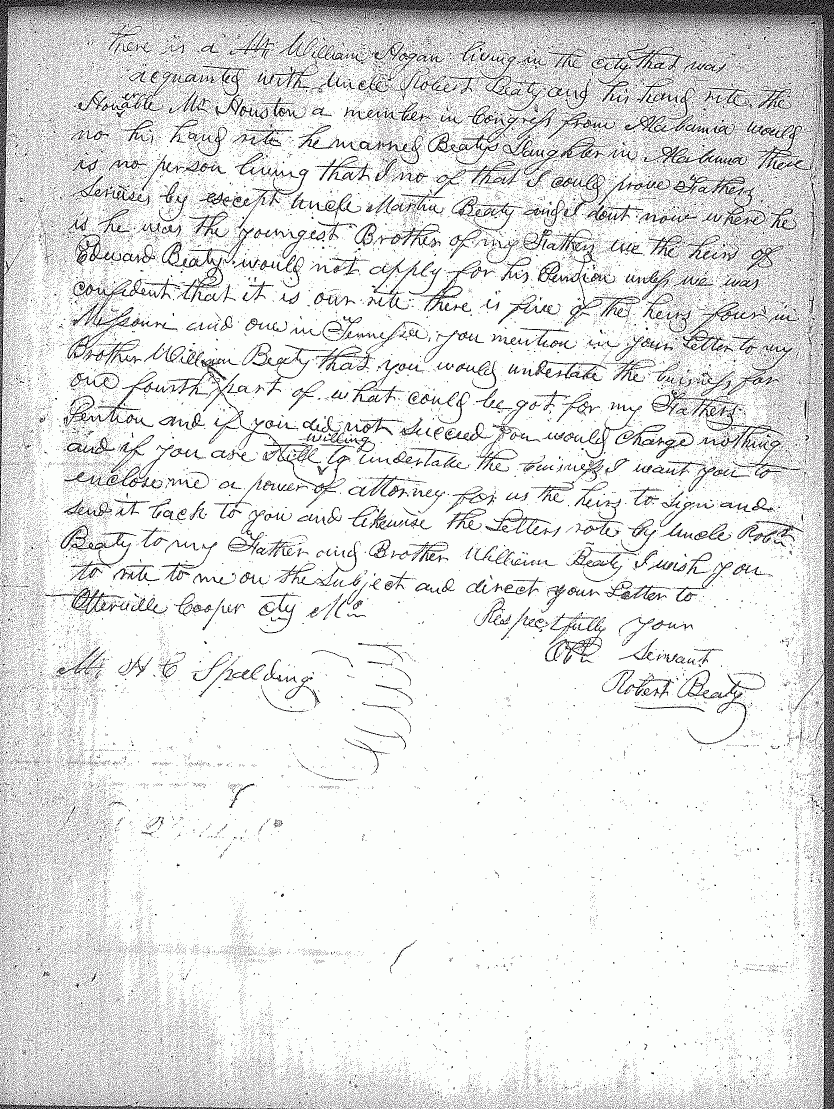 there is a Mr William Hogan living in the city that was
acquainted with Uncle Robert Beaty and his hand rite. the
Honorable Mr Houston a member in Congress from Alabama would
no his hand rite he married Beatys Daughter in Alabama there
is no person living that I no of that I could prove Fathers
Servises by except Uncle Martin Beaty and I dont now where he
is he was the youngest Brother of my Fathers we the heirs of
Edward Beaty would not apply for his Pension unless we was
confident that it is our rite there is five of the heirs four in
Missouri and one in Tennessee. you mention in your Letter to my
Brother William Beaty that you would undertake the buisness for
one fourth part of what could be got for my Fathers
Pention and if you did not succeed you would charge nothing
and if you are still willing to undertake the buisness I want you to
enclose me a power of attorney for us the heirs to sign and
send it back to you and likewise the Letters rote by Uncle Robt
Beaty to my Father and Brother William Beaty I wish you
to rite to me on the Subject and direct your Letter to
Otterville Cooper cty Mo
Respectfully your
Obt Servant
Robert Beaty
Mr H C Spalding